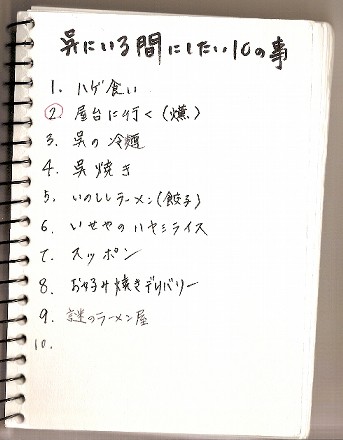 呉にいる間にしたい10の事
1. ハゲ食い
2. 屋台に行く(燻)
3. 呉の冷麺
4. 呉焼き
5. いのししラーメン(餃子)
6. いせやのハヤシライス
7. スッポン
8. お好み焼きデリバリー
9. 謎のラーメン屋
10.